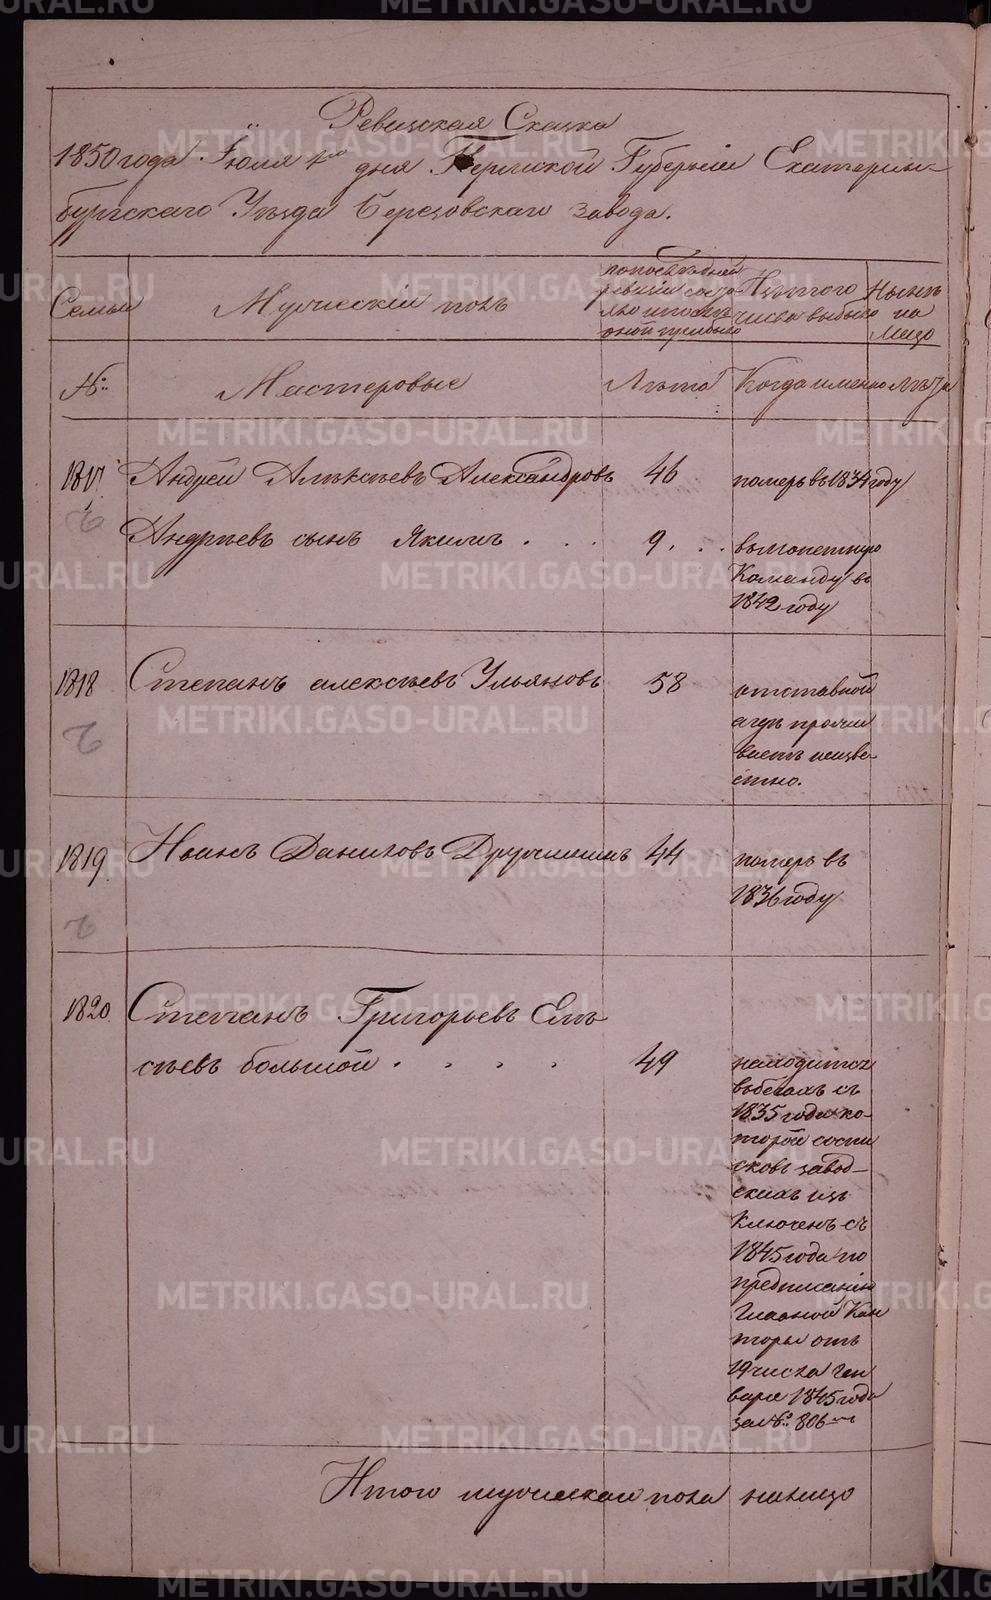 Ревизская Сказка
1850 года Іюля дня Пермской Губерніи Екатерин-
бургскаго Уѣзда Березовскаго завода.
Семьи
Мужескій полъ
по послѣдней
ревизіи состо-
яло и послѣ
оной прибыло
Изъ того
числа выбыло
Нынѣ
на
Лицо
№
Мастеровые
Лѣта
Когда именно
Лѣта
1817
Андрей Алексѣевъ Александровъ
46
померъ въ 1834 году
Андреевъ сынъ Якимъ . . .
9 . . .
въ монетную
Команду въ
1842 году
1818
Степанъ алексѣевъ Ульяновъ
58
отставной
а гдѣ прожи
ваетъ неизве-
стно.
1819
Иванъ Даниловъ Дружининъ
44
померъ въ
1836 году
1820
Степанъ Григорьевъ Ели-
сѣевъ большой . . . .
49
находится
въ бегахъ съ
1835 года ко-
торой со спи
сковъ завод-
скихъ из
ключенъ съ
1845 года по
предписанію
Главной Кон
торы отъ
19 числа Ген
варя 1845 года
за № 806
Итого мужеска пола налицо
METRIKI.GASO-URAL.RU